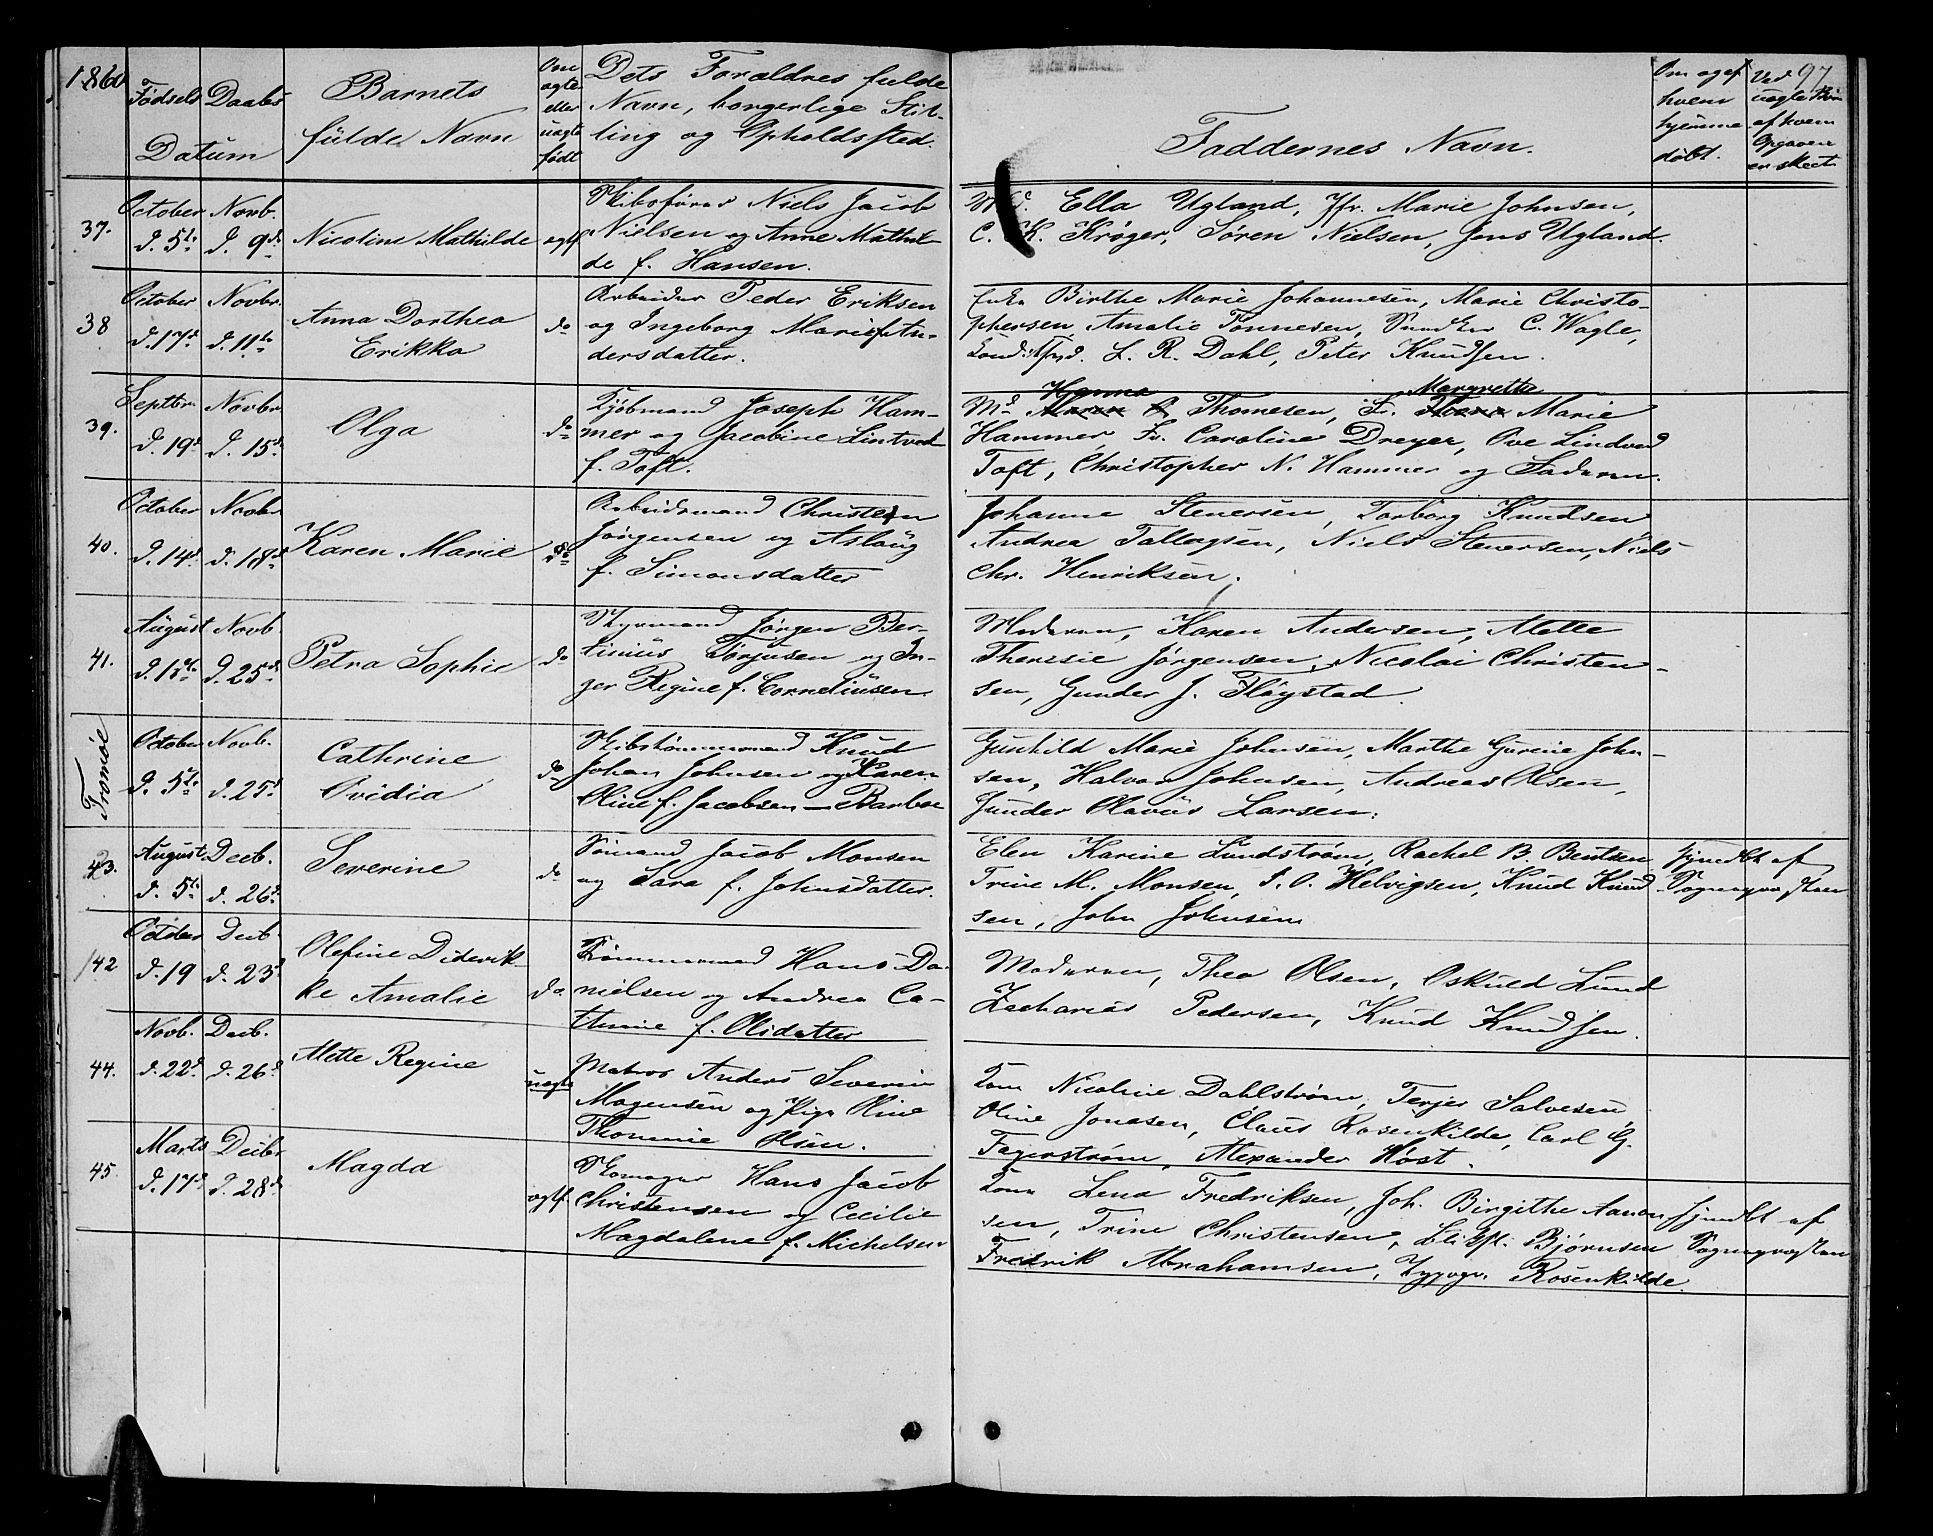 1860
97
Fødsels Daabs
Datum
Barnets
fulde Navn
Om
ægte
eller
uægte
født
Dets Forældres fulde
Navn, borgerlige Stil-
ling og Opholdssted.
Faddernes Navn.
Om og af
hvem
hjemme
døbt.
Ved
uægte Børn
af hvem
Opgaven
er skeet
37.
October Novb.
d. 5te d. 9de
Nicoline Mathilde
ægtf
Skibsfører Niels Jacob
Nielsen og Anne Mathil-
de f. Hansen.
Md. Ella Ugland, Jfr. Marie Johnsen,
C. K. Krøger, Søren Nielsen, Jens Ugland.
38
October Novbr.
d. 17d d. 11te
Anna Dorthea
Erikka
do
Arbeider Peder Eriksen
og Ingeborg Marie f. An-
dersdatter.
Enke Birthe Marie Johannesen, Marie Christo-
phersen, Amalie Tønnesen, C. Wagle,
L. R. Dahl, Peter Knudsen.
39.
Septbr. Novbr
d. 19d d. 15d
Olga
do
Kjøbmand Joseph Ham-
mer og Jacobine Lintved
f. Toft.
Hanna Margrethe
Md Thomesen, Fr. Marie
Hammer Fr. Caroline Dreyer, Ove Lindved
Toft, Christopher N. Hammer og Faderen.
40.
October Novbr
d. 14d d. 18d
Karen Marie
do
Arbeidsmand Christen
Jørgensen og Aslaug
f. Simonsdatter
Johanne Stenersen, Torborg Knudsen
Andrea Tallegsen, Niels Stenersen, Niels
Chr. Henriksen.
41.
August Novb.
d. 25d
Petra Sophie
do
Styrmand Jørgen Ber-
tinius Torjusen og In-
ger Regine f. Corneliusen
Moderen, Karen Andersen, Mette
Theresie Jørgensen, Nicolai Christen-
sen, Gunder J. Fløystad.
Tromøe
October Novb.
d. 5te d. 25d
Cathrine
Ovidia
do
Skibstømmermand Knud
Johan Johnsen og Karen
Oline f. Jacobsen - Barboe
Gunhild Marie Johnsen, Marthe Gurine John-
sen, Halvor Johnsen, Andreas Olsen,
Gunder Olavus Larsen.
43.
August Decb.
d. 5te d. 26d
Severine
do
Sømand Jacob Monsen
og Sara f. Johnsdatter.
Elen Karine Lundstrøm, Rachel B. Bentsen
Trine M. Monsen, J. O. Helvigsen, Knud Knud-
sen, John Johnsen
Hjmdbt af
Sognepresten
42
October Decb.
d. 19 d. 23d
Olefine Diderik-
ke Amalie
do
Tømmermand Hans Da-
nielsen og Andrea Ca-
thrine f. Olsdatter
Moderen, Thea Olsen, Oskuld Lund
Zacharias Pedersen, Knud Knudsen.
44.
Novb. Decb.
d. 22d d. 26d
Mette Regine
uægte
Matros Anders Severin
Mogensen og Pige Oline
Thomine Olsen.
Nicoline Dahlstrøm, Terjer Salvesen
Oline Jonasen, Claus Rosenkilde, Carl G.
Fagerstrøm, Alexander Høst.
45.
Marts Decbr
d. 17d d. 28d
Magda
ægtf.
Skomager Hans Jacob
Christensen og Cecilie
Magdalene f. Michelsen
Lena Fredriksen, Joh. Birgithe Aanon-
sen, Trine Christensen, Bjørnsen
Fredrik Abrahamsen, Rosenkilde.
Hjmdbt af
Sognepresten